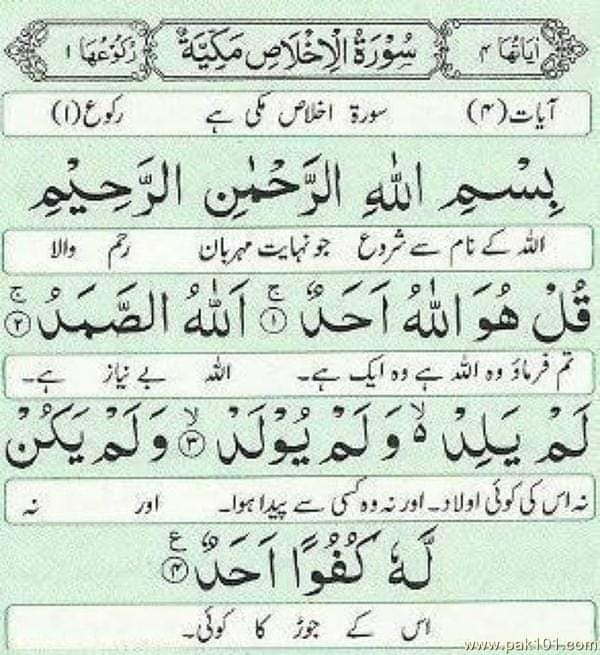 اٰيَاتُهَا ۴ سُوْرَةُ الْاِخْلَاصِ مَكِّيَّةٌ رُكُوْعُهَا ۱
آیات (۴) سورۃ اخلاص مکی ہے رکوع (۱)
بِسْمِ اللّٰهِ الرَّحْمٰنِ الرَّحِيْمِ
اللہ کے نام سے شروع جو نہایت مہربان رحم والا
قُلْ هُوَ اللّٰهُ اَحَدٌ ۚ۱ اَللّٰهُ الصَّمَدُ ۚ۲
تم فرماؤ وہ اللہ ہے وہ ایک ہے۔ اللہ بے نیاز ہے۔
لَمْ يَلِدْ ۙ۬ وَلَمْ يُوْلَدْ ۙ۳ وَلَمْ يَكُنْ
نہ اس کی کوئی اولاد۔ اور نہ وہ کسی سے پیدا ہوا۔ اور نہ
لَّهٗ كُفُوًا اَحَدٌ ۴ ع
اس کے جوڑ کا کوئی۔
www.pak101.com